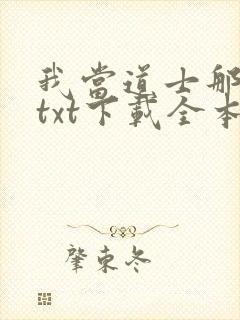 我當道士那
txt下載全本
肇東冬